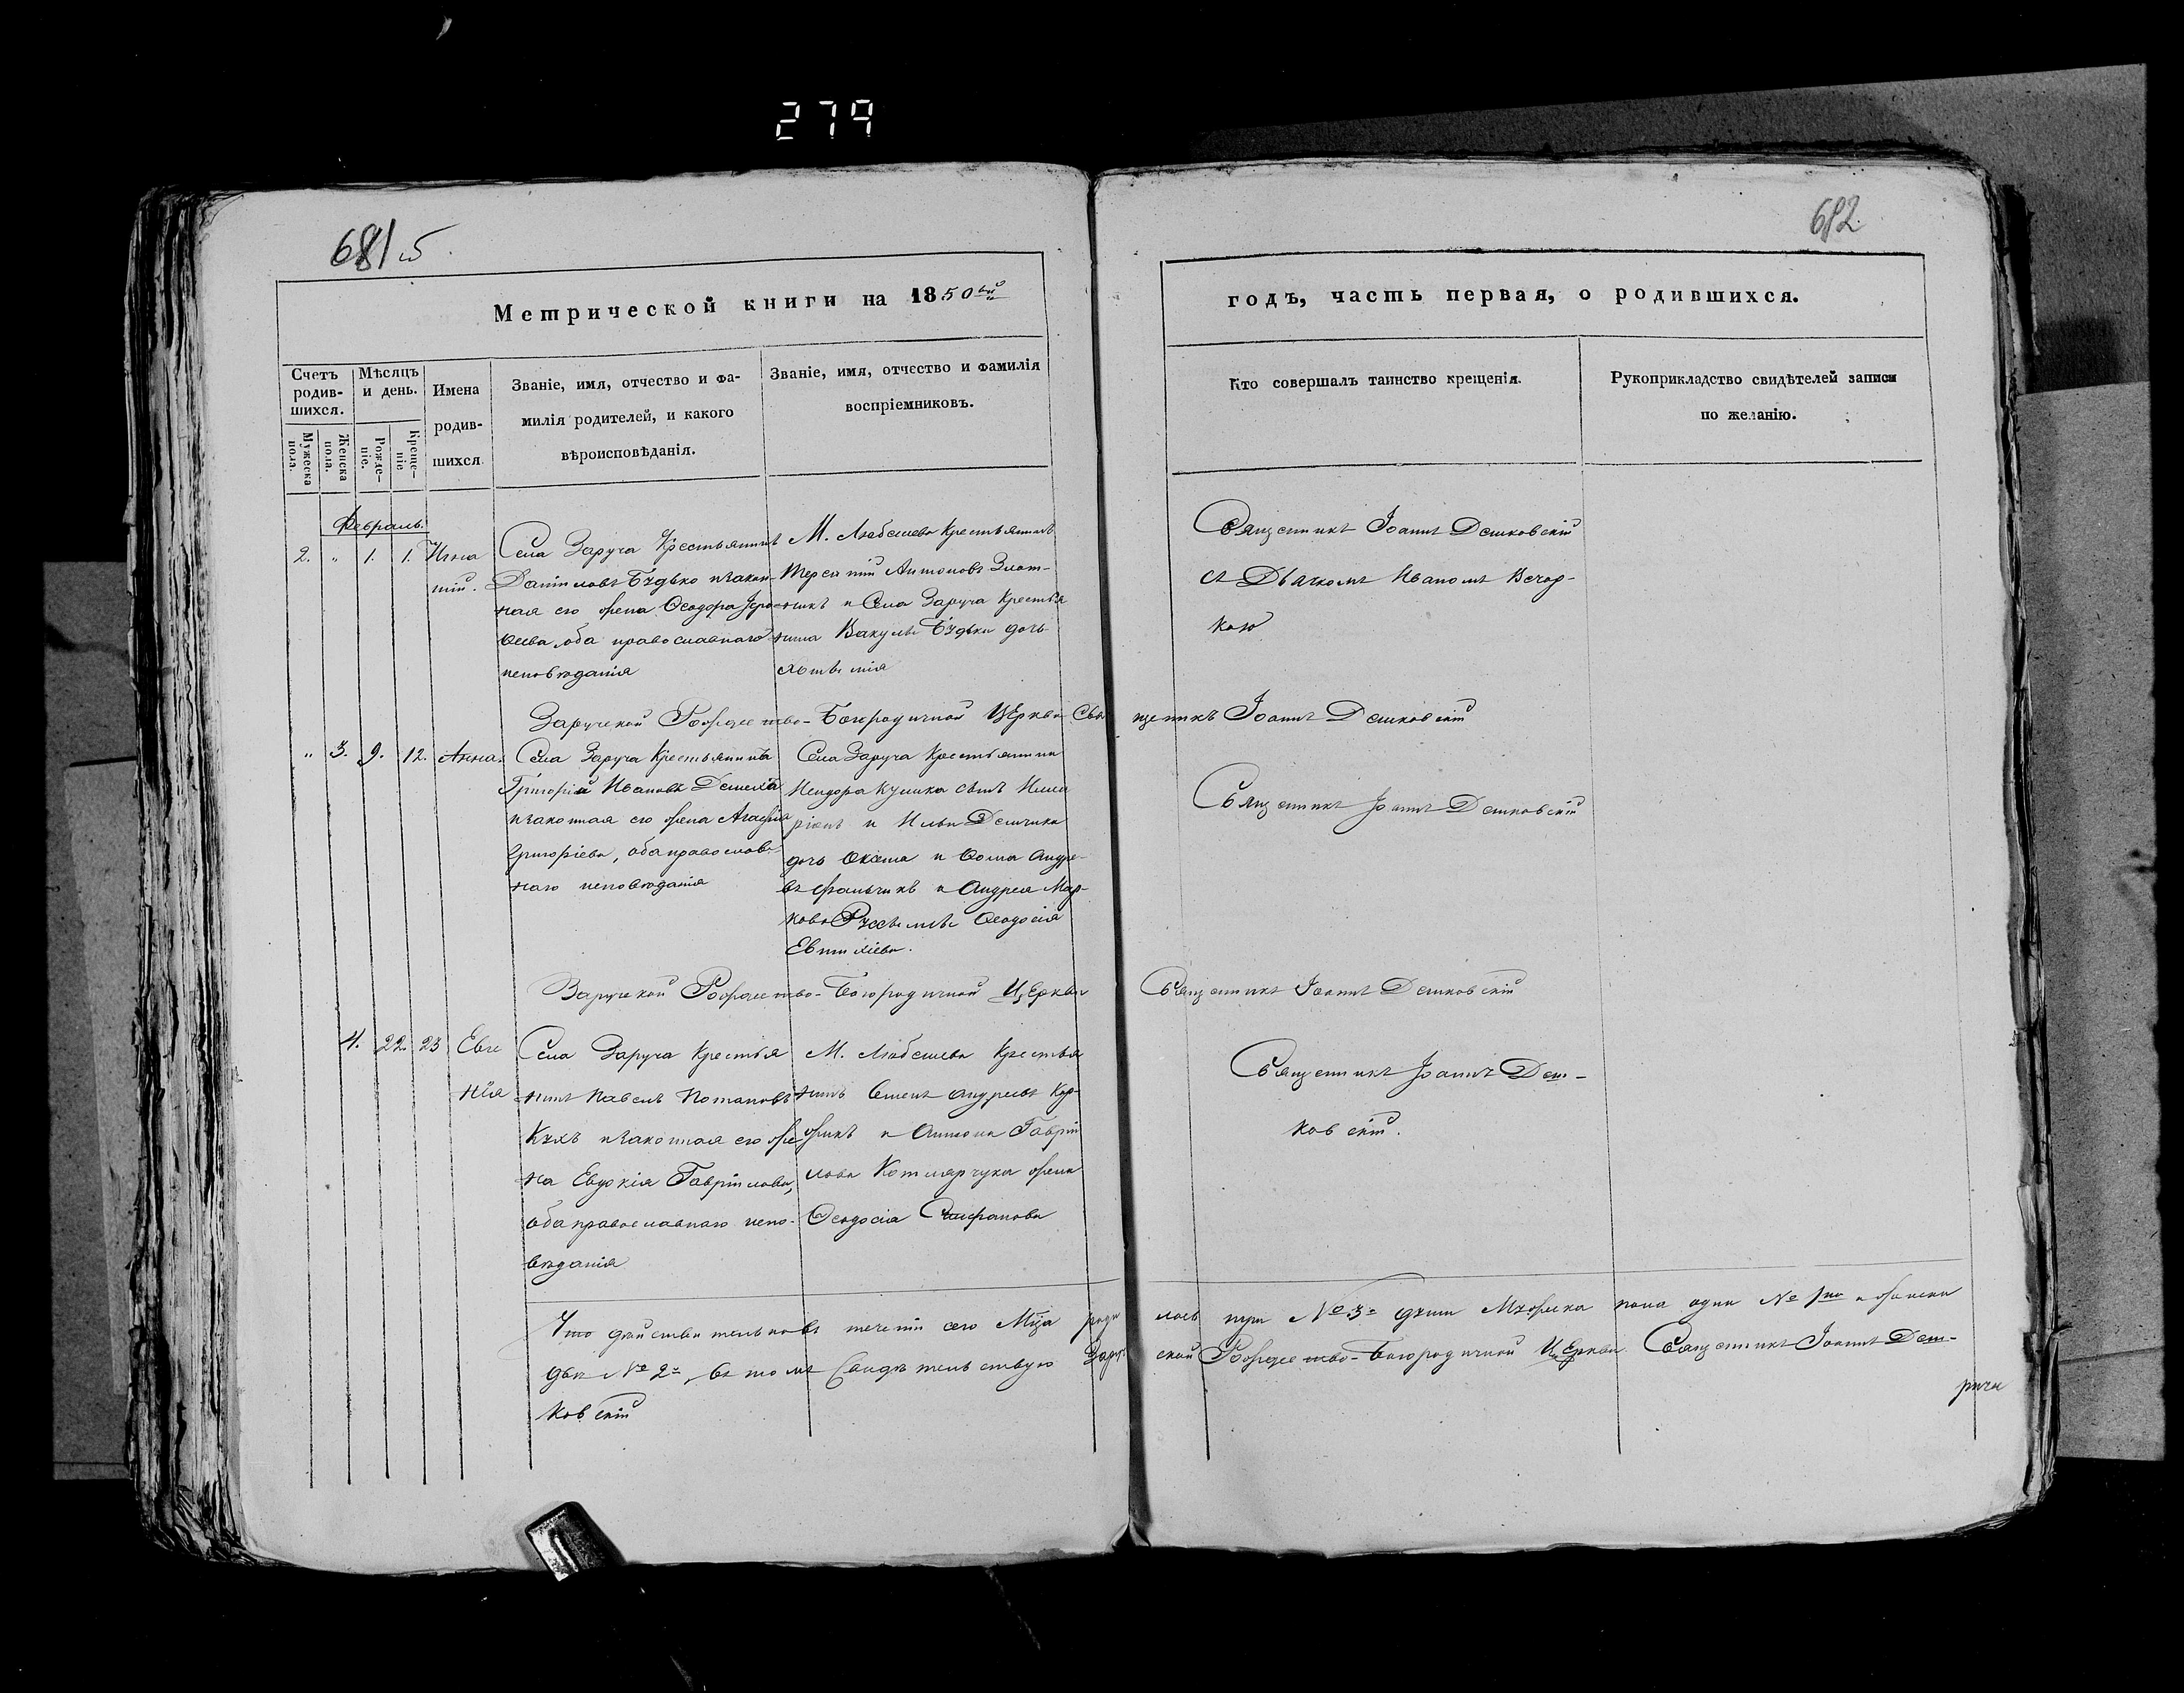 279
681 5.
682
Метрической книги на 1850ый
годъ, часть первая, о родившихся.
Счетъ родив-шихся.
Мужеска пола.
Женска пола.
Мѣсяцъ и день.
Рожде-ніе.
Креще-ніе
Имена родив-шихся
Званіе, имя, отчество и фа-
милія родителей, и какого
вѣроисповѣданія.
Званіе, имя, отчество и фамилія
воспріемниковъ.
Кто совершалъ таинство крещенія.
Рукоприкладство свидѣтелей записи
по желанію.
Февраль.
2. " 1. 1. Игна
тій.
Села Заруча Крестьянинъ
Даніиловъ Будько изакон-
ная его жена Ѳеодора
ѳеева оба православнаго
исповѣданія
М. Любешева Крестьянинъ
Антоновъ
и Села Заруча Крестья
нина Вакулы Будьки дочь
Священникъ Іоаннъ Дешковскій
съ Дьячкомъ Иваномъ Вечор-
кою
Заручской Рождество-Богородичной Церкви Священникъ Іоаннъ Дешковскій
" 3. 9. 12. Анна.
Села Заруча Крестьянинъ
Григорій Ивановъ
изаконная его жена Агафія
Григоріева, оба православ-
наго исповѣданія
Села Заруча Крестьянина
сынъ Илла
ріонъ и Ильи
дочь и Ѳома Андре-
въ и Андрея Мар-
кова Ѳеодосія
Евтихіева.
Священникъ Іоаннъ Дешковскій
Заручской Рождество-Богородичной Церкви Священникъ Іоаннъ Дешковскій
4. 22. 23 Евге
нія
Села Заруча Крестья
нинъ Павелъ Потаповъ
Кухъ изаконная его же
на Евдокія Гавріилова,
оба православнаго испо-
вѣданія
М. Любешева Крестья
нинъ Семенъ Андреевъ Кор-
жикъ и Антона Гаврі
лова Котлярчука жена
Ѳеодосія
Священникъ Іоаннъ Деш-
ковскій.
Что дѣйствительно въ теченіи сего Мца родилось три №3= души Мужеска пола одна №1на и женска
двѣ №2=, въ томъ Свидѣтельствую Заручской Рождество-Богородичной Церкви Священникъ Іоаннъ Деш-
ковскій